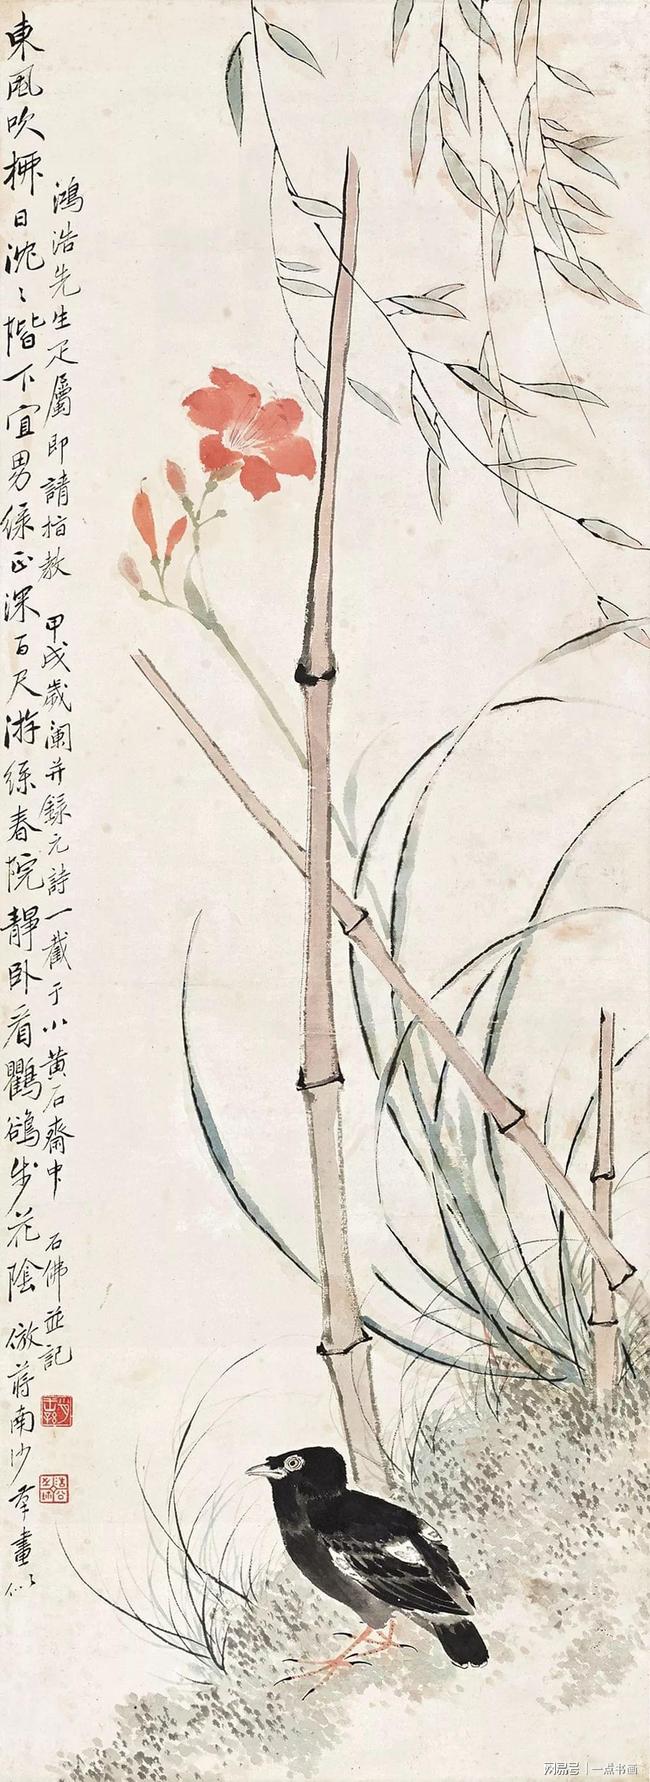 東風吹拂日沈〻階下宜男綠正深百尺游絲春院靜臥看鸜鵒步花陰 倣蔣南沙筆畫
鴻浩先生疋屬即請指教 甲戌歲闌并錄元詩一截于小黃石齋中 石佛並記
网易号 | 一点书画